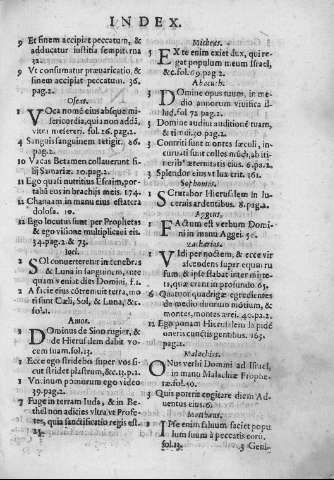 INDEX.
9 Et finem accipiat peccatum, &
adducatur iustitia sempiterna
32
9 Vt consumatur præuaricatio, &
finem accipiat peccatum. 36.
pag.2.
Oseas.
1 VOca nomē eius absque mi-
sericordia, qui non addā,
vltra misereri. fol. 26. pag.2.
4 Sanguis sanguinem tetigit. 86.
pag.2.
10 Vacas Betamen colluerunt fi-
lij Samariæ. 20. pag.2.
11 Ego quasi nutritius Efraim, por-
tabā eos in brachijs meis. 174.
12 Chanaam in manu eius statera
dolosa. 10.
12 Ego locutus sum per Prophetas
& ego visione multiplicaui eis.
34. pag.2. & 73.
Ioel.
2 SOl conuerteretur in tenebras
& Luna in sanguinem, ante
quam veniat dies Domini.
2 A facie eius cōtremuit terra, mo-
ti sunt Cæli, Sol, & Luna, &c.
fol.1.
Amos.
2 DOminus de Sion rugiet, &
de Hierusalem dabit vo-
cem suam. fol.13.
1 Ecce ego stridebo super vos si-
cut stridet plastrum, &c.
1 Vncinum pomorum ego video
39. pag.2.
7 Fuge in terram Iuda, & in Be-
thel non adicies vltra vt Profe-
tes, quia sanctificatio regis est.
23.
Micheas.
5 EX te enim exiet dux, qui re-
gat populum meum Israel,
&c. fol.69. pag.2.
Abacuch.
3 DOmine opus tuum, in me-
dio annorum viuifica il-
lud. fol 73 pag.2.
3 Domine audiui auditionē tuam,
& timui. 30 pag.2.
3 Contriti sunt montes sæculi, in-
curuati sunt colles mūdi, ab iti-
neribᵘ æternitatis eius. 6. pa.2.
3 Splendor eius vt lux erit. 161.
Sophonias.
1 SCrutabor Hierusalem in lu-
cernis ardentibus. 8. pag.2.
Aggeus.
1 FActum est verbum Domi-
ni in manu Aggei
Zacharias.
1 VIdi per noctem, & ecce vir
ascendens super equum ru
fum, & ipse stabat inter mirte-
ta, quæ erant in profundo 63.
6 Quatuor quadrigæ egredientes
de medio duorum mōtium, &
montes, montes ærei. 40. pag.2.
12 Ego ponam Hierusalem lapidē
oneris cunctis gentibus. 163.
pag.2.
Malachias.
1 ONus verbi Domini ad Israel,
in manu Malachiæ Prophe-
tæ. fol.50.
3 Quis poterit cogitare diem Ad-
uentus eius. 6.
Mattheus.
1 IPse enim saluum faciet popu
lum suum à peccatis eorū,
fol.13.
5 Geni-